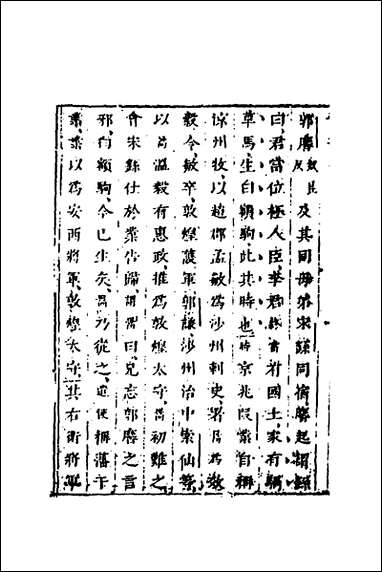 郭黁及其同母弟宋繇同宿黁起謂繇
曰君當位極人臣李君終當有國土家有騧
草馬生白額駒此其時也時京兆段業自稱
涼州牧以趙郡孟敏為沙州刺史署暠為效
穀令敏卒敦煌護軍郭謙沙州治中索仙等
以暠溫毅有惠政推為敦煌太守暠初難之
會宋繇仕於業告歸謂暠曰兄忘郭黁之言
邪白額駒今已生矣暠乃從之遣使稱藩于
業業以為安西將軍敦煌太守其右衛將軍